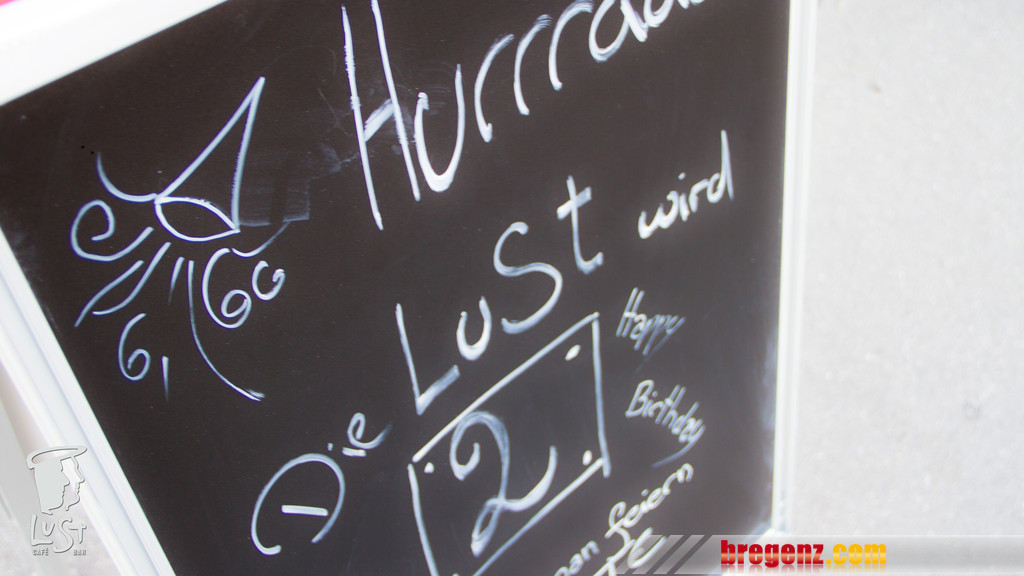 Hurrraaa
Die LuSt wird
2
Happy
Birthday
feiern
LuSt
CAFÉ BAR
bregenz.com